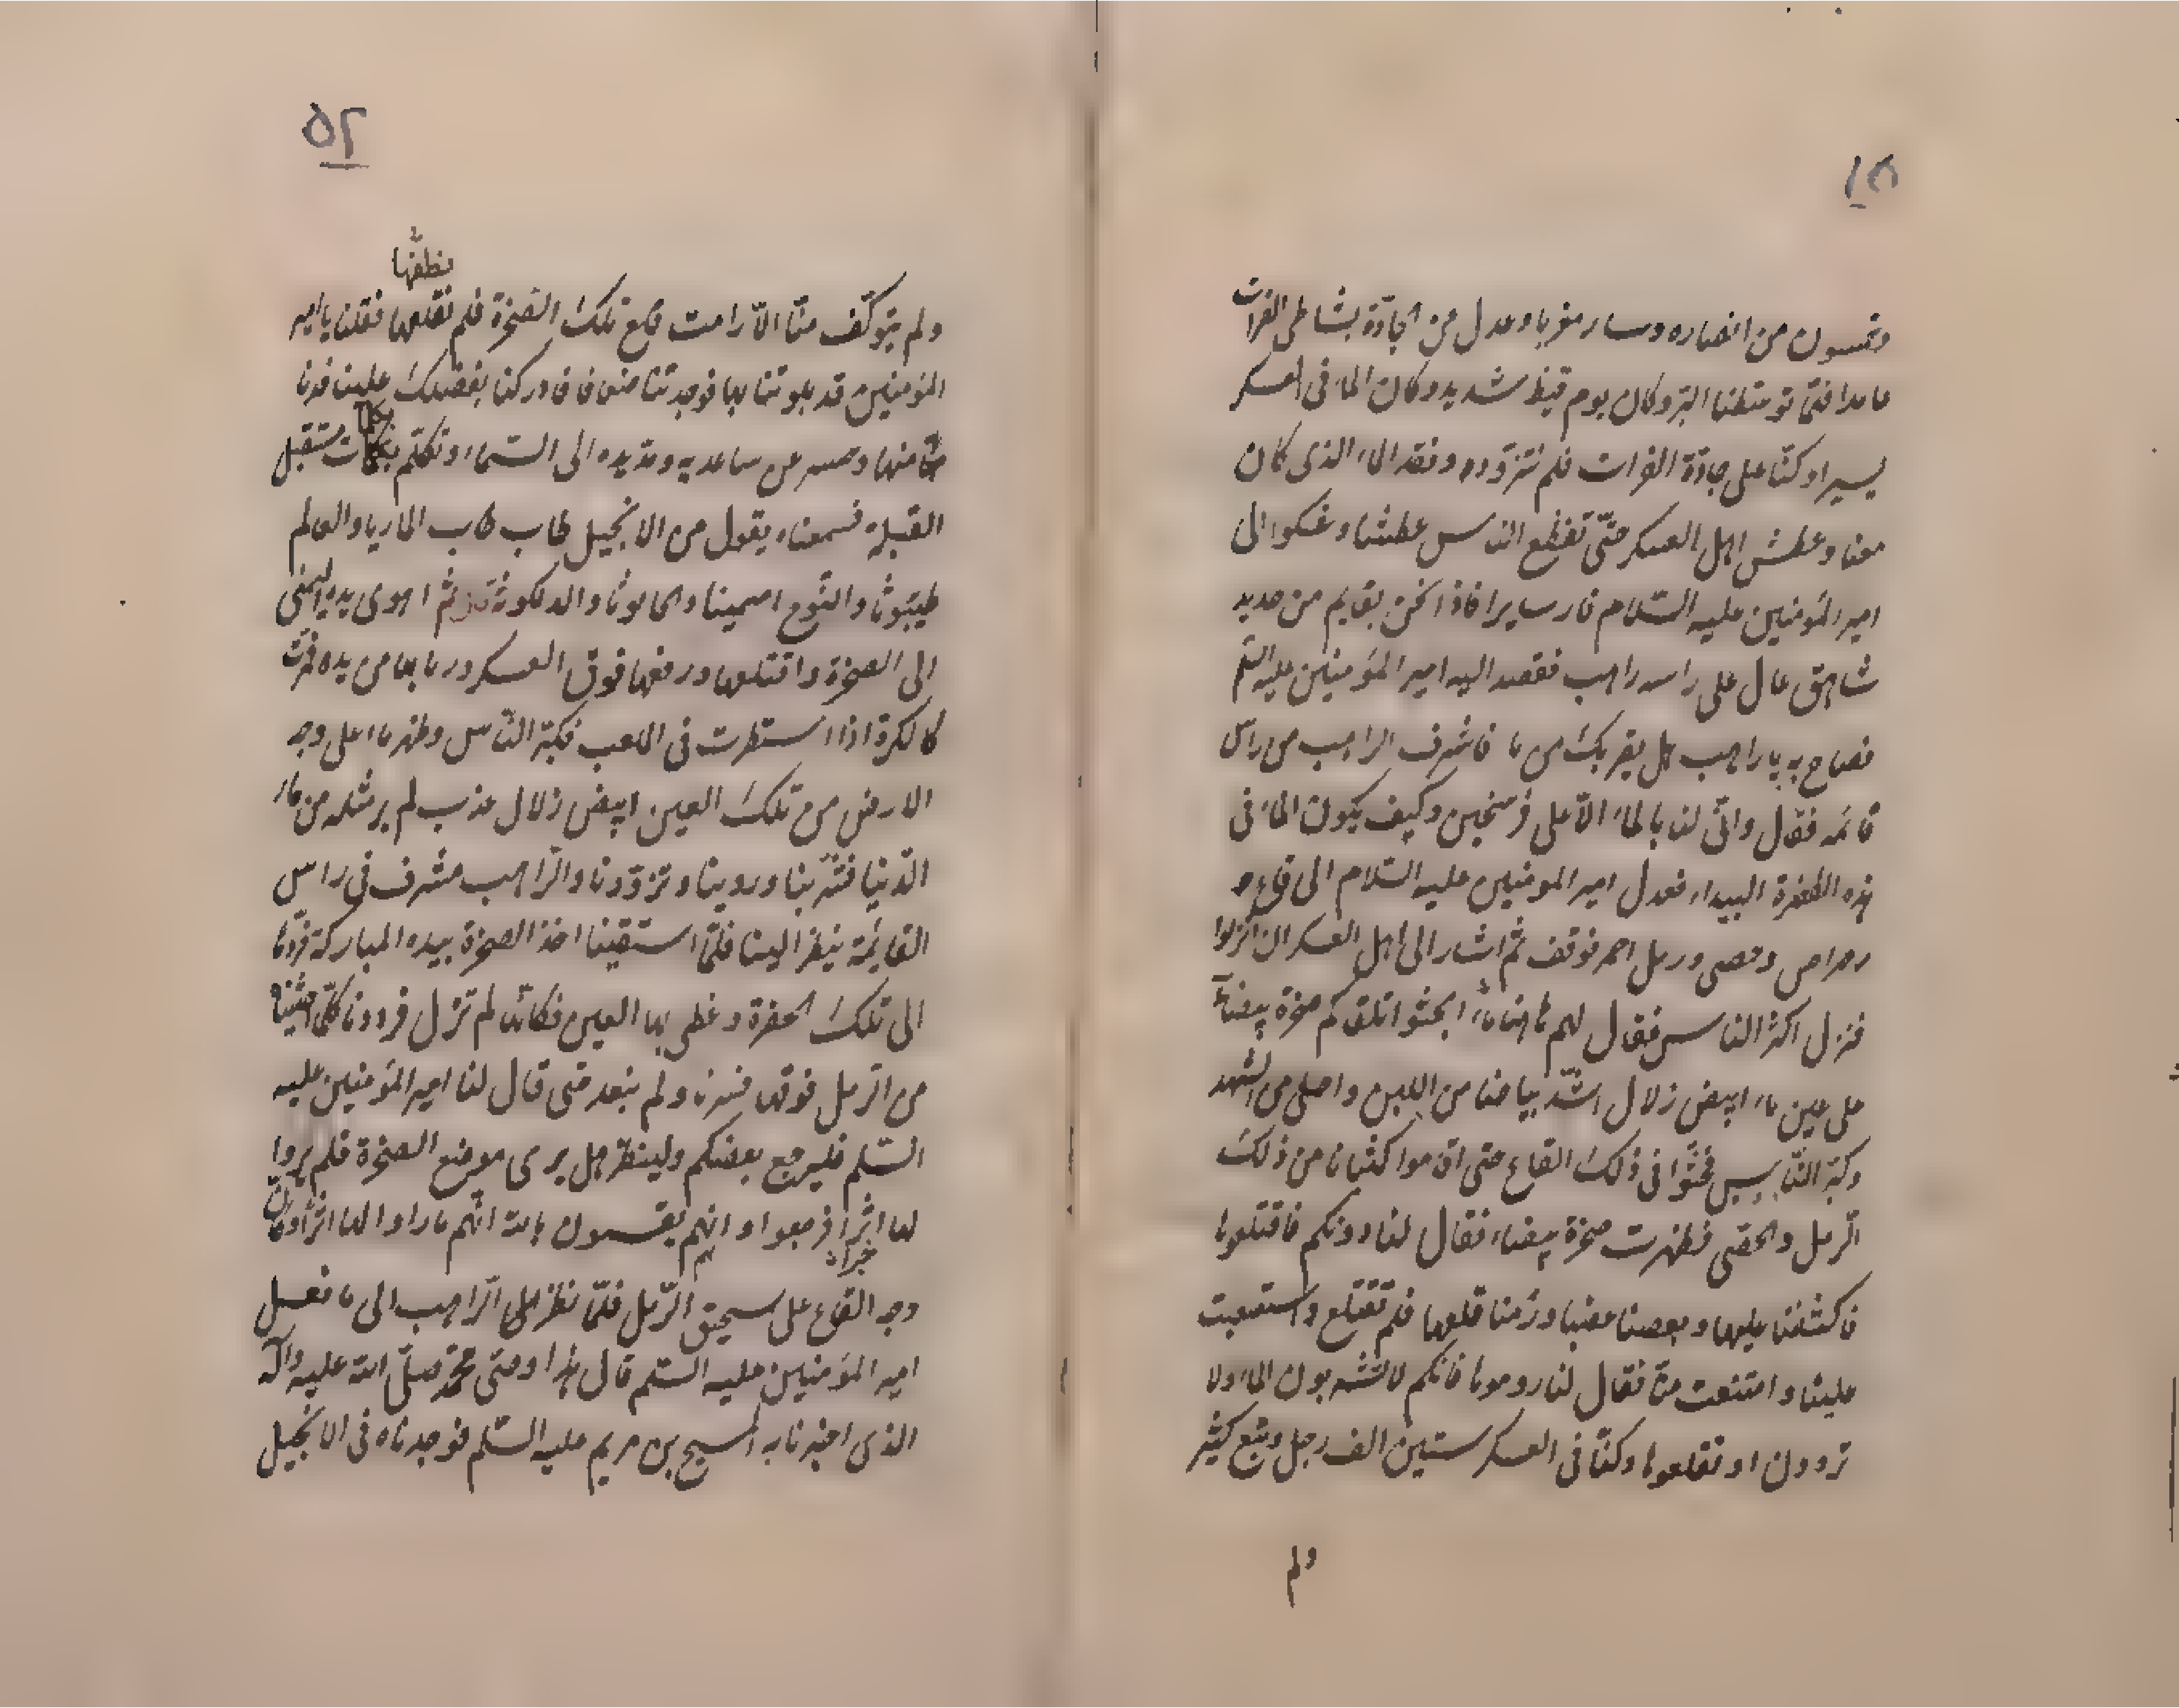 ١٥
وخمسون من انصاره وسار مغربا وعدل من الجادّة بشاطى الفرات
عامدا فتى توسّطنا البرّ وكان يوم قيظ شديد وكان الماء فى العسكر
يسيرا وكنّا على جادّة الفرات فلم نتزوّده ونفد الماء الذى كان
معنا وعطش اهل العسكر حتّى تقطّع الناس عطشا وشكوا الى
امير المؤمنين عليه السّلام فار سايرا فاذا نحن بقايم من حديد
شاهق عال على راسه راهب فقصد اليه امير المؤمنين عليه السّلم
فصاح به يا راهب هل بقربك من ما فاشرف الراهب من راس
قائمه فقال وانّى لنا بالماء الّا على فرسخين وكيف يكون الماء فى
هذه القفرة البيداء فعدل امير المومنين عليه السّلام الى قاع
رصراص وحصى ورمل احمر فوقف ثمّ اشار الى اهل العسكر ان انزلوا
فنزل اكثر الناس فقال لهم ههنا ماء ابحثوا تلقاكم صخرة بيضاء
على عين ماء ابيض زلال اشدّ بياضا من اللبن واحلى من الشهد
وكبّر النّاس فجثوا فى ذلك القاع حتى اقاموا كثبانا من ذلك
الرّمل والحصى فظهرت صخرة بيضاء فقال لنا دونكم فاقتلعوها
فاكتنفنا عليها وبعصنا عصبا ورمنا قلعها فلم تقتلع واستصعبت
علينا وامتنعت منّا فقال لنا روموها فانكم لا تشربون الماء ولا
تروون او تقلعوها وكنّا فى العسكر ستين الف رجل وتبع كثير
ولم
٥٢
نطقها
ولم يتوكّف منّا الّا رامت قلع تلك الصّخرة فلم نقلعها فقلنا يا امير
المؤمنين قد بلوتنا بها فوجدتنا ضعافا فادركنا بفضلك علينا فدنا
منّا منها وحسر عن ساعديه ومدّ يده الى السّماء وتكلّم بكلمات مستقبل
القبلة فسمعناه يقول من الانجيل طاب طاب الماريا والعالم
طيبوثا والنّوح اسمينا والحابوثا والد لكوثه ثمّ اهوى يديه اليمنى
الى الصخرة واقتلعها ورفعها فوق العسكر ورما بها من يده فمرّت
كالكرة اذا استطرت فى اللعب فكبّر النّاس وظهر ماء على وجه
الارض من تلك العين ابيض زلال عذب لم ير مثله من ماء
الدّنيا فشربنا وروينا وتزوّدنا والرّاهب مشرف فى راس
القائمة ينظر الينا فلمّا استقينا اخذ الصخرة بيده المباركة فردّها
الى تلك الحفرة وغطى بها العين فكانّها لم تزل فرددنا كلّما
من الرّمل فوقها فسرنا ولم نبعد حتى قال لنا امير المؤمنين عليه
السّلم فليرجع بعضكم ولينظر هل يرى موضع الصخرة فلم يروا
لها اثرا فرجعوا وانهم يقسمون بالله انّهم ما راوا لها اثرا وانّ
خبراء
وجه القاع على سحيق الرّمل فلمّا نظر الرّاهب الى ما فعل
امير المؤمنين عليه السّلم قال هذا وصى محمّد صلّى الله عليه وآله
الذى اخبرنا به المسيح بن مريم عليه السّلم فوجدناه فى الانجيل